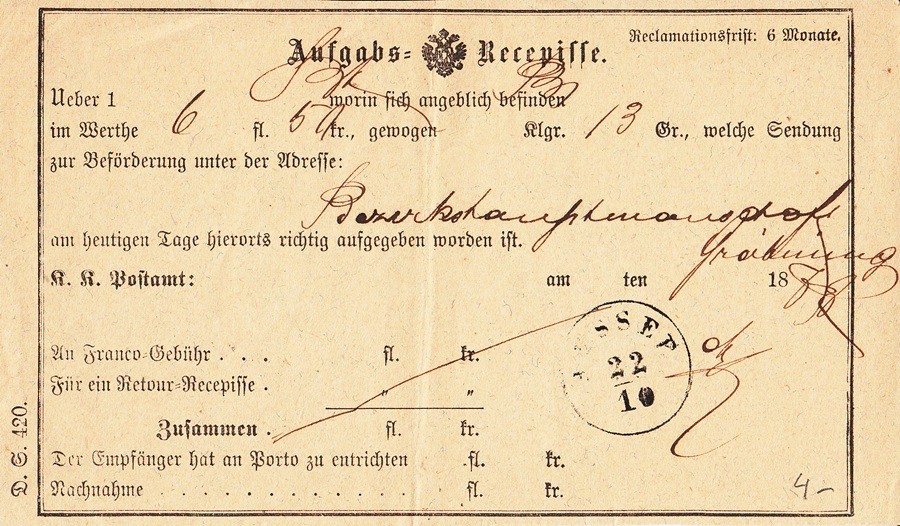 Reclamationsfrist: 6 Monate.
Aufgabs- Recepisse.
Ueber 1 worin sich angeblich befinden
im Werthe 6 fl. 50 kr., gewogen Klgr. 13 Gr., welche Sendung
zur Beförderung unter der Adresse:
Bezirkshauptmannschaft
am heutigen Tage hierorts richtig aufgegeben worden ist.
Gröbming
K. K. Postamt: am ten 18
AUSSEE
22
10
An Franco-Gebühr . . . fl. kr.
Für ein Retour-Recepisse . „ „
Zusammen . fl. kr.
Der Empfänger hat an Porto zu entrichten fl. kr.
Nachnahme . . . . . . . . . . . . . . fl. kr.
D. S. 420.
4-